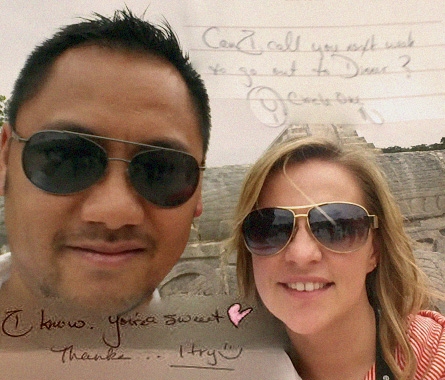 Can I call you next week
to go out to Dinner?
Circle One
I know. You're sweet
Thanks... I try